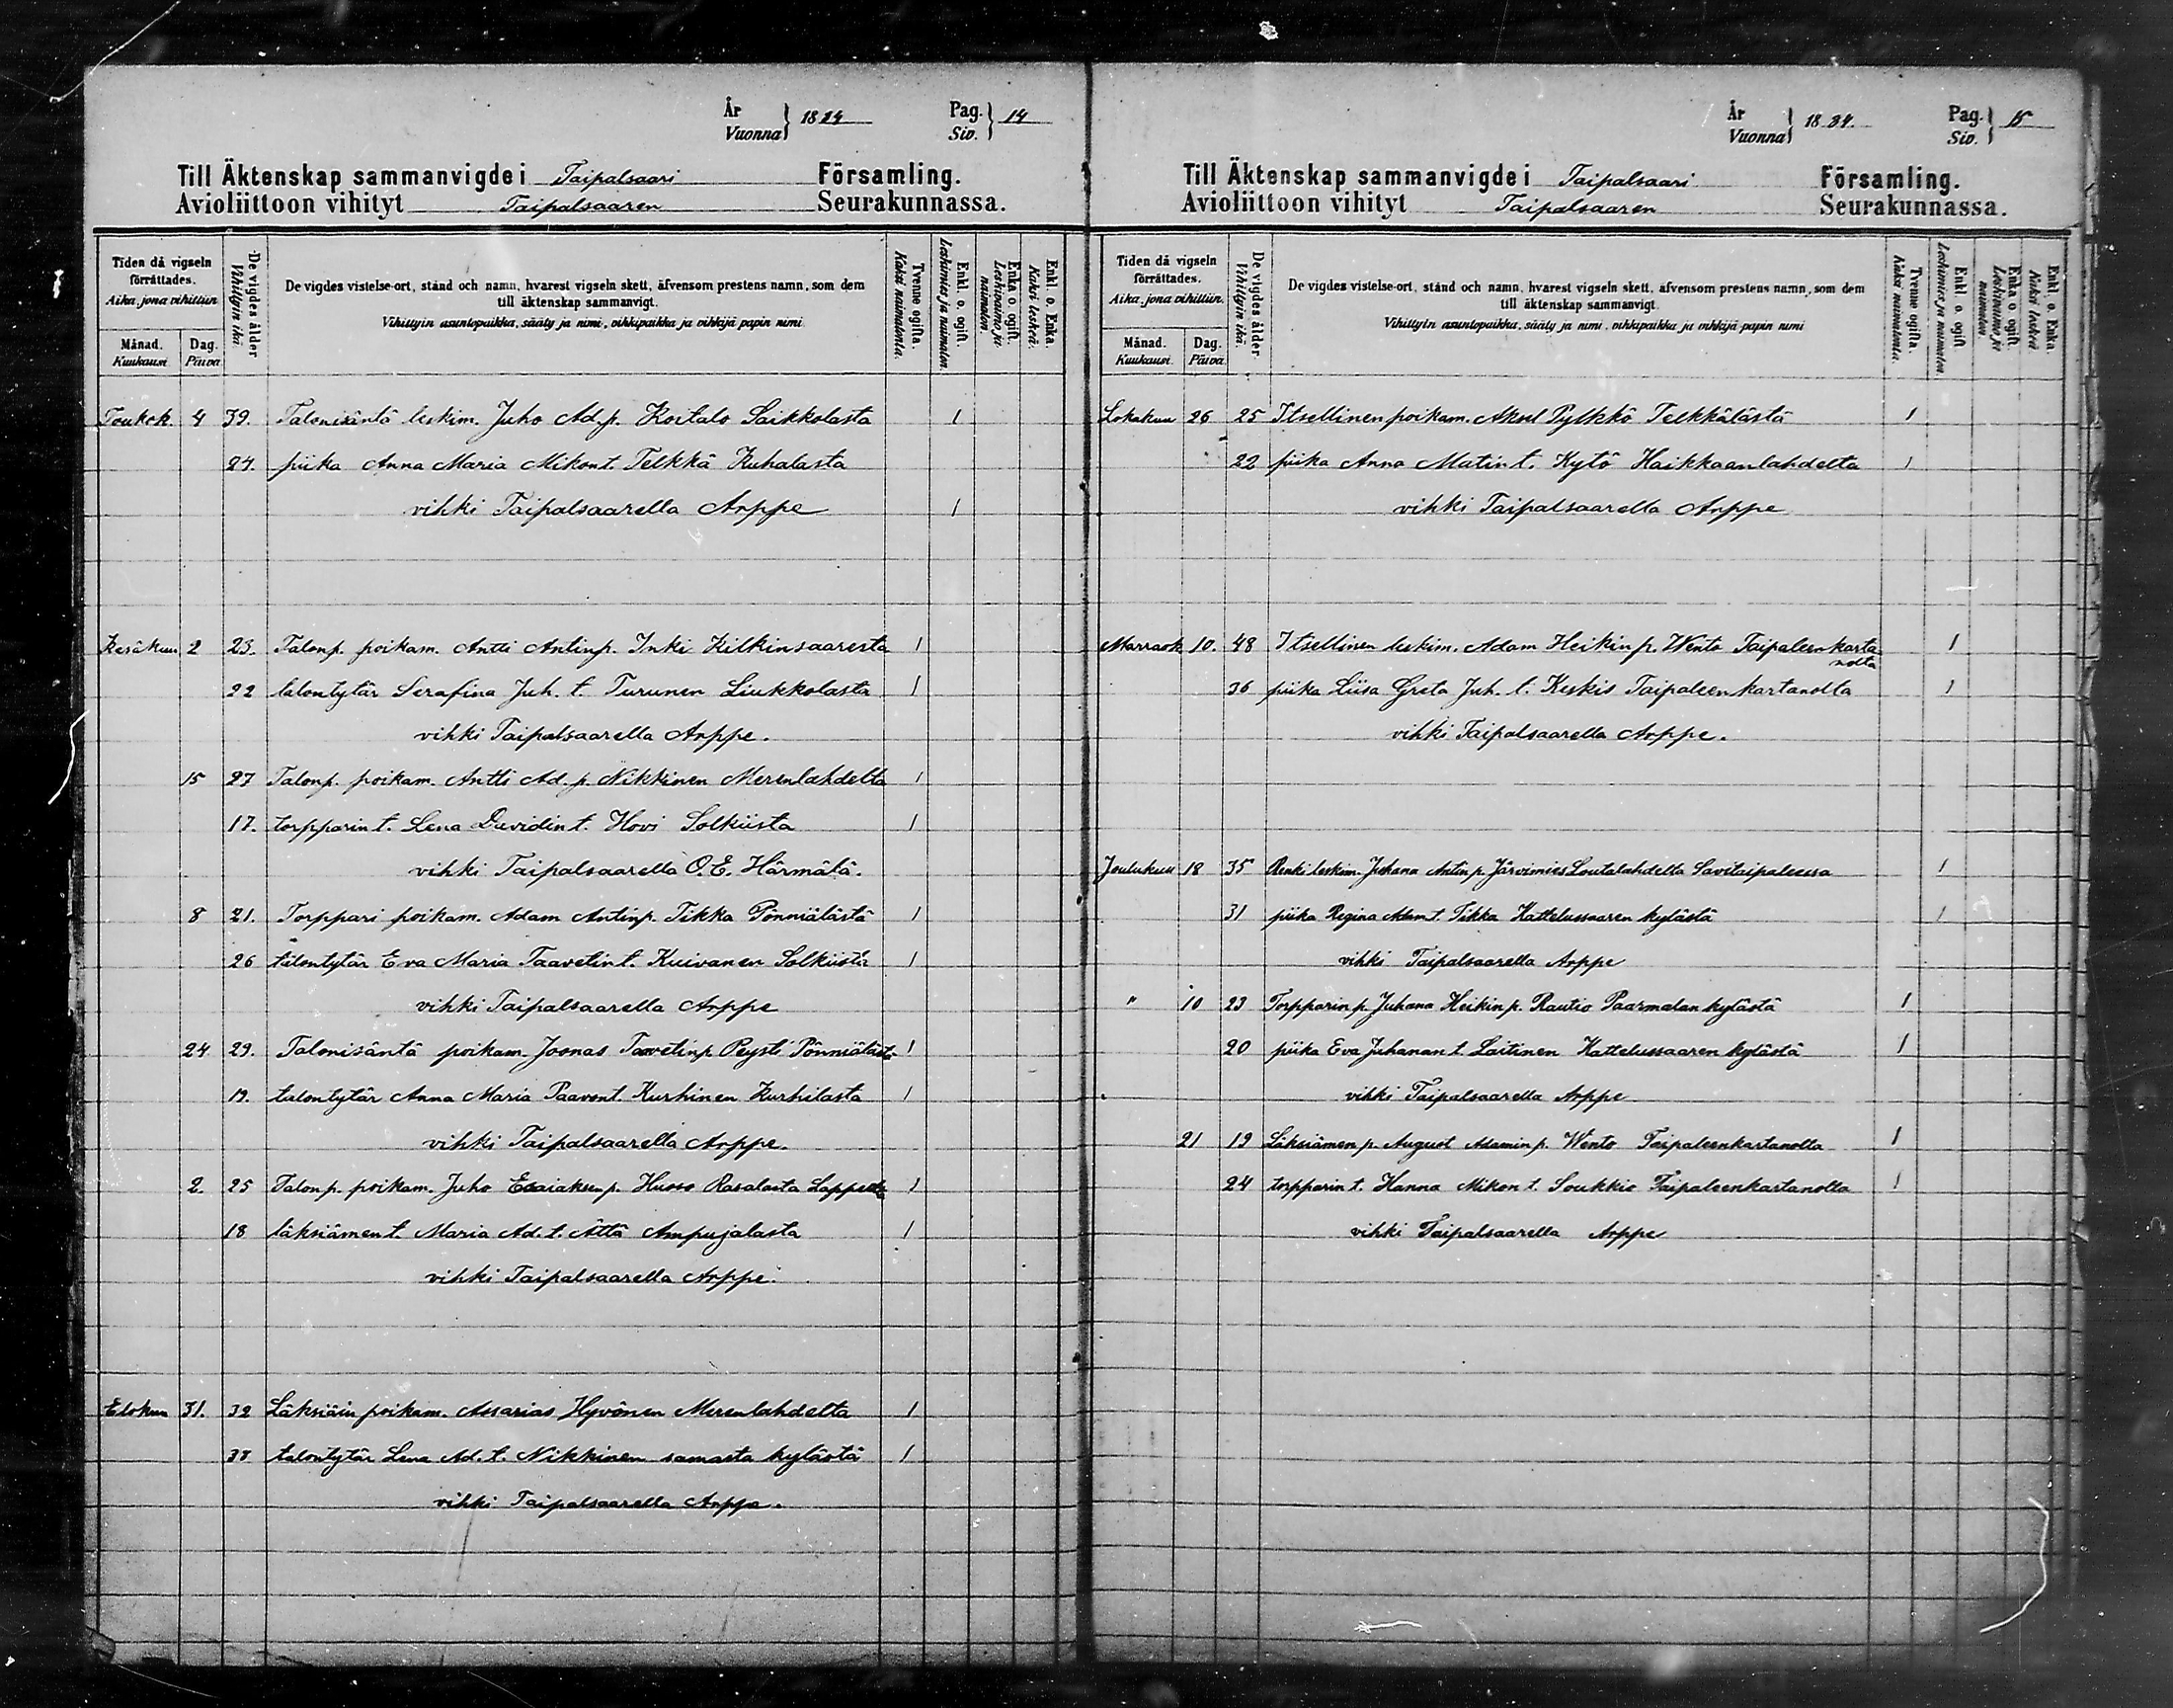 År
Vuonna } 1884
Pag.
Siv. } 14
Till Äktenskap sammanvigde i Taipalsaari Församling.
Avioliittoon vihityt Taipalsaaren Seurakunnassa.
Tiden då vigseln förrättades.
Aika, jona vihittiin.
Månad.
Kuukausi.
Dag.
Päivä.
De vigdes ålder
Vihittyin ikä.
De vigdes vistelse-ort, stånd och namn, hvarest vigseln skett, äfvensom prestens namn, som dem
till äktenskap sammanvigt.
Vihittyin asuntopaikka, sääty ja nimi, vihkipaikka ja vihkijä papin nimi
Tvenne ogifta.
Kaksi naimatonta.
Enkl. o. ogift.
Leskimies ja naimaton.
Enka o. ogift.
Leskivaimo ja naimaton.
Enkl. o. Enka.
Kaksi leskeä.
Toukok. 4 39. Talonisäntä leskim. Juho Ad. p. Koitalo Saikkolasta 1
24. piika Anna Maria Mikont. Telkkä Kuhalasta
vihki Taipalsaarella Arppe 1
Kesäkuu 2 23. Talonp. poikam. Antti Antinp. Inki Kilkinsaaresta 1
22 talontytär Serafina Juh. t. Turunen Liukkolasta 1
vihki Taipalsaarella Arppe.
15 27 Talonp. poikam. Antti Ad. p. Nikkinen Merenlahdelta 1
17. torpparin t. Lena Davidin t. Hovi Solkiista 1
vihki Taipalsaarella O. E. Härmälä.
8 21. Torppari poikam. Adam Antinp. Tikka Pönniälästä 1
26 talontytär Eva Maria Taavetin t. Kuivanen Solkiista 1
vihki Taipalsaarella Arppe
24 29. Talonisäntä poikam. Joonas Taavetinp. Peysti Pönniälästä 1
19. talontytär Anna Maria Paavont. Kurhinen Kurhilasta 1
vihki Taipalsaarella Arppe.
2. 25 Talonp. poikam. Juho Esaiaksen p. Husso Rasalasta 1
18 läksiämen t. Maria Ad. t. Ättä Ampujalasta 1
vihki Taipalsaarella Arppe.
Elokuu 31. 32 Läksiäin poikam. Assarias Hyvönen Merenlahdelta 1
38 talontytär Lena Ad. t. Nikkinen samasta kylästä 1
vihki Taipalsaarella Arppe.
År
Vuonna } 1884.
Pag.
Siv. } 15
Till Äktenskap sammanvigde i Taipalsaari Församling.
Avioliittoon vihityt Taipalsaaren Seurakunnassa.
Tiden då vigseln förrättades.
Aika, jona vihittiin.
Månad.
Kuukausi.
Dag.
Päivä.
De vigdes ålder
Vihittyin ikä.
De vigdes vistelse-ort, stånd och namn, hvarest vigseln skett, äfvensom prestens namn, som dem
till äktenskap sammanvigt.
Vihittyin asuntopaikka, sääty ja nimi, vihkipaikka ja vihkijä papin nimi
Tvenne ogifta.
Kaksi naimatonta.
Enkl. o. ogift.
Leskimies ja naimaton.
Enka o. ogift.
Leskivaimo ja naimaton.
Enkl. o. Enka.
Kaksi leskeä
Lokakuu 26 25 Itsellinen poikam. Aksel Pylkkö Telkkälästä 1
22 piika Anna Matin t. Kytö Haikkaanlahdelta 1
vihki Taipalsaarella Arppe
Marrask. 10. 48 Itsellinen leskim. Adam Heikin p. Wento Taipaleenkarta- 1
nolta
36 piika Liisa Greta Juh. t. Keskis Taipaleenkartanolta 1
vihki Taipalsaarella Arppe.
Joulukuu 18 35 Renki leskim. Juhana Antin p. Järvimies Loutalahdelta Savitaipaleessa 1
31 piika Regina Adam t. Tikka Kattelussaaren kylästä 1
vihki Taipalsaarella Arppe
" 10 23 Torpparin p. Juhana Heikin p. Rautio Paarmalan kylästä 1
20 piika Eva Juhanan t. Laitinen Kattelussaaren kylästä 1
vihki Taipalsaarella Arppe
21 19 Läksiämen p. August Adamin p. Wento Taipaleenkartanolta 1
24 torpparin t. Hanna Mikon t. Soukkio Taipaleenkartanolta 1
vihki Taipalsaarella Arppe